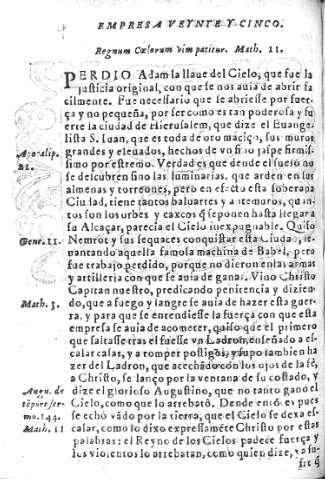 EMPRESA VEYNTE Y CINCO.
Regnum Cœlorum vim patitur. Math. 11.
PERDIO Adam la llaue del Cielo, que fue la
justicia original, con que se nos auia de abrir fa
cilmente. Fue necessario que se abriesse por fuer
ça y no pequeña, por ser como es tan poderosa y fu
erte la ciudad de Hierusalem, que dize el Euange
Apocalip. lista S. Iuan, que es toda de oro maciço, sus muros
21. grandes y eleuados, hechos de vn fino jaspe firmis
simo por estremo. Verdad es que dende el suelo no
se delcubren sino las luminarias, que arden en las
almenas y torreones, pero en efecto esta soberana
Ciudad, tiene tantos baluartes y antemuros, quan
tos son los orbes y caxcos q̃ se ponen hasta llegar a
su Alcaçar, parecia el Cielo inexpugnable. Quiso
Gene. 11. Nemrot y sus sequaces conquistar esta Ciudad, le
uantando aquella famosa machina de Babel, pero
fue trabajo perdido, porque no dieron en las armas
y artilleria con que se auia de ganar. Vino Christo
Capitan nuestro, predicando penitencia y dizien
Math. 3. do, que a fuego y sangre se auia de hazer esta guer
ra, y para que se entendiesse la fuerça con que esta
empresa se auia de acometer, quiso que el primero
que saltasse tras el fuesse vn Ladron, enseñado a es
calar casas, y a romper postigos, y supo tambien ha
zer del Ladron, que acechãdo con los ojos de la fé,
a Christo, se lanço por la ventana de su costado, Y
Augu. de dize el glorioso Augustino, que no tanto ganó el
tẽpore ser- Cielo, como que lo arrebató. Dende entõces pues
mo. 144. se echó vãdo por la tierra, que el Cielo se dexa es-
Math. 11 calar, como lo dixo expressamẽte Christo por estas
palabras: el Reyno de los Cielos padece fuerça y
los violentos lo arrebatan, como quien dize, ya su-